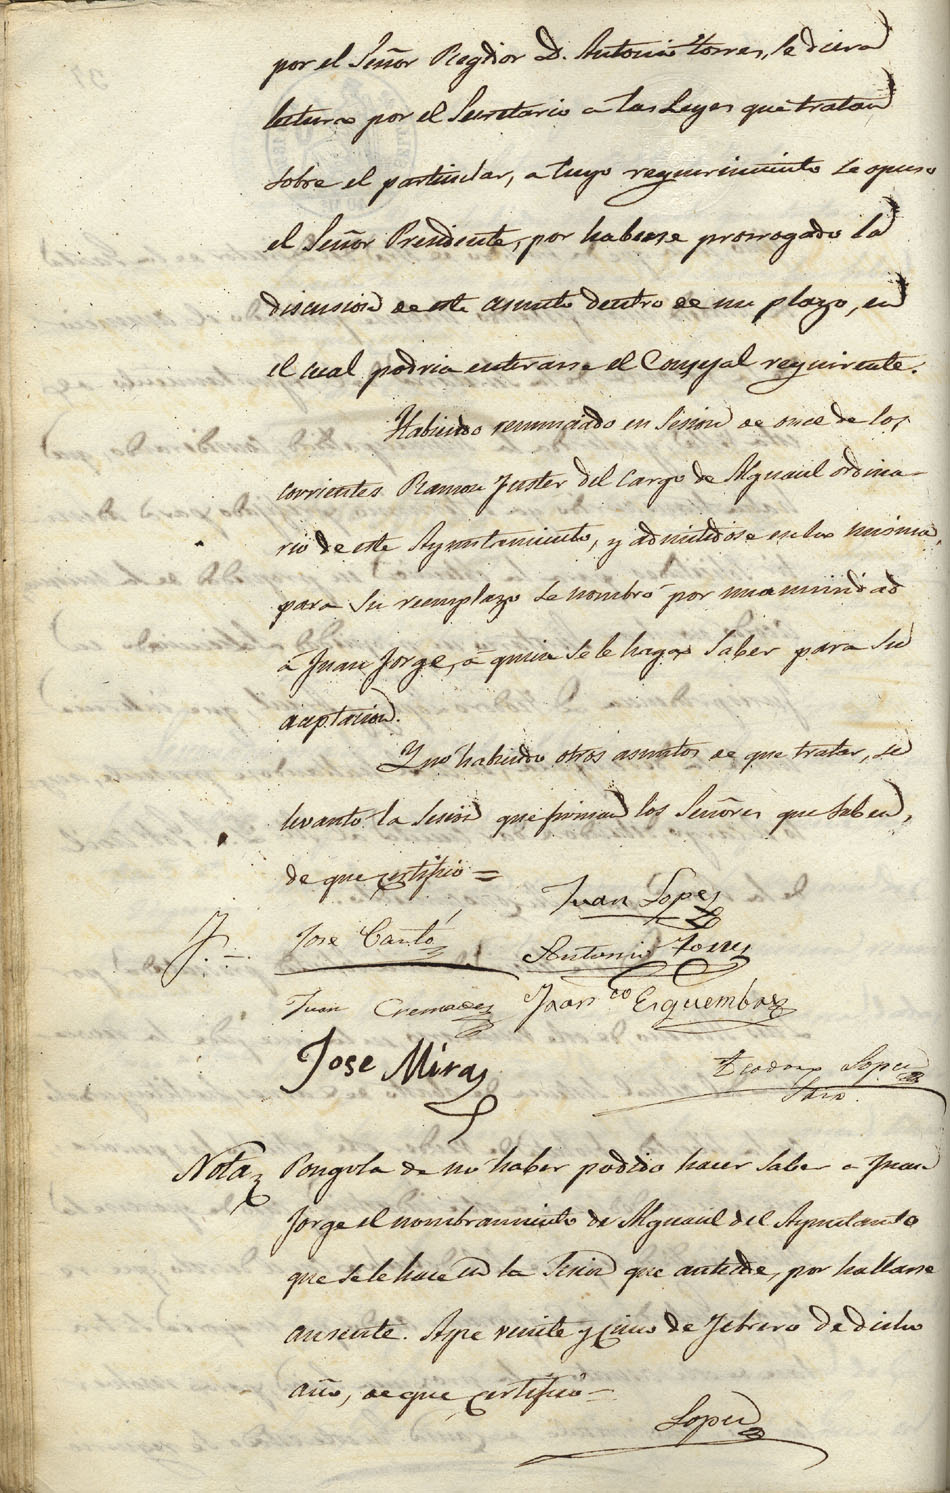 por el Señor Regidor D. Antonio Torres, se diera
lectura por el Secretario a las Leyes que tratan
sobre el particular, a cuyo requerimiento se opuso
el Señor Presidente, por haberse prorrogado la
discusion de este asunto dentro de un plazo, en
el cual podria enterarse el Concejal requirente.
Habiendo renunciado en sesion de once de los
corrientes Ramon Juster del cargo de Alguacil ordina-
rio de este Ayuntamiento, y admitidose en la misma,
para su reemplazo se nombró por unanimidad
á Juan Jorge, á quien se le haga saber para su
aceptacion.
Y no habiendo otros asuntos de que tratar, se
levanto la sesion que firman los Señores que saben,
de que certifico =
Juan Lopez
Jose Cantó
Antonio Torres
Juan Cremades
Fran.co Esquembre
Jose Mira
Teodoro Lopez
Srio.
Nota
Pongola de no haber podido hacer saber a Juan
Jorge el nombramiento de Alguacil del Ayuntamto
que se le hace en la sesion que antecede, por hallarse
ausente. Aspe veinte y cinco de Febrero de dicho
año, de que certifico =
Lopez